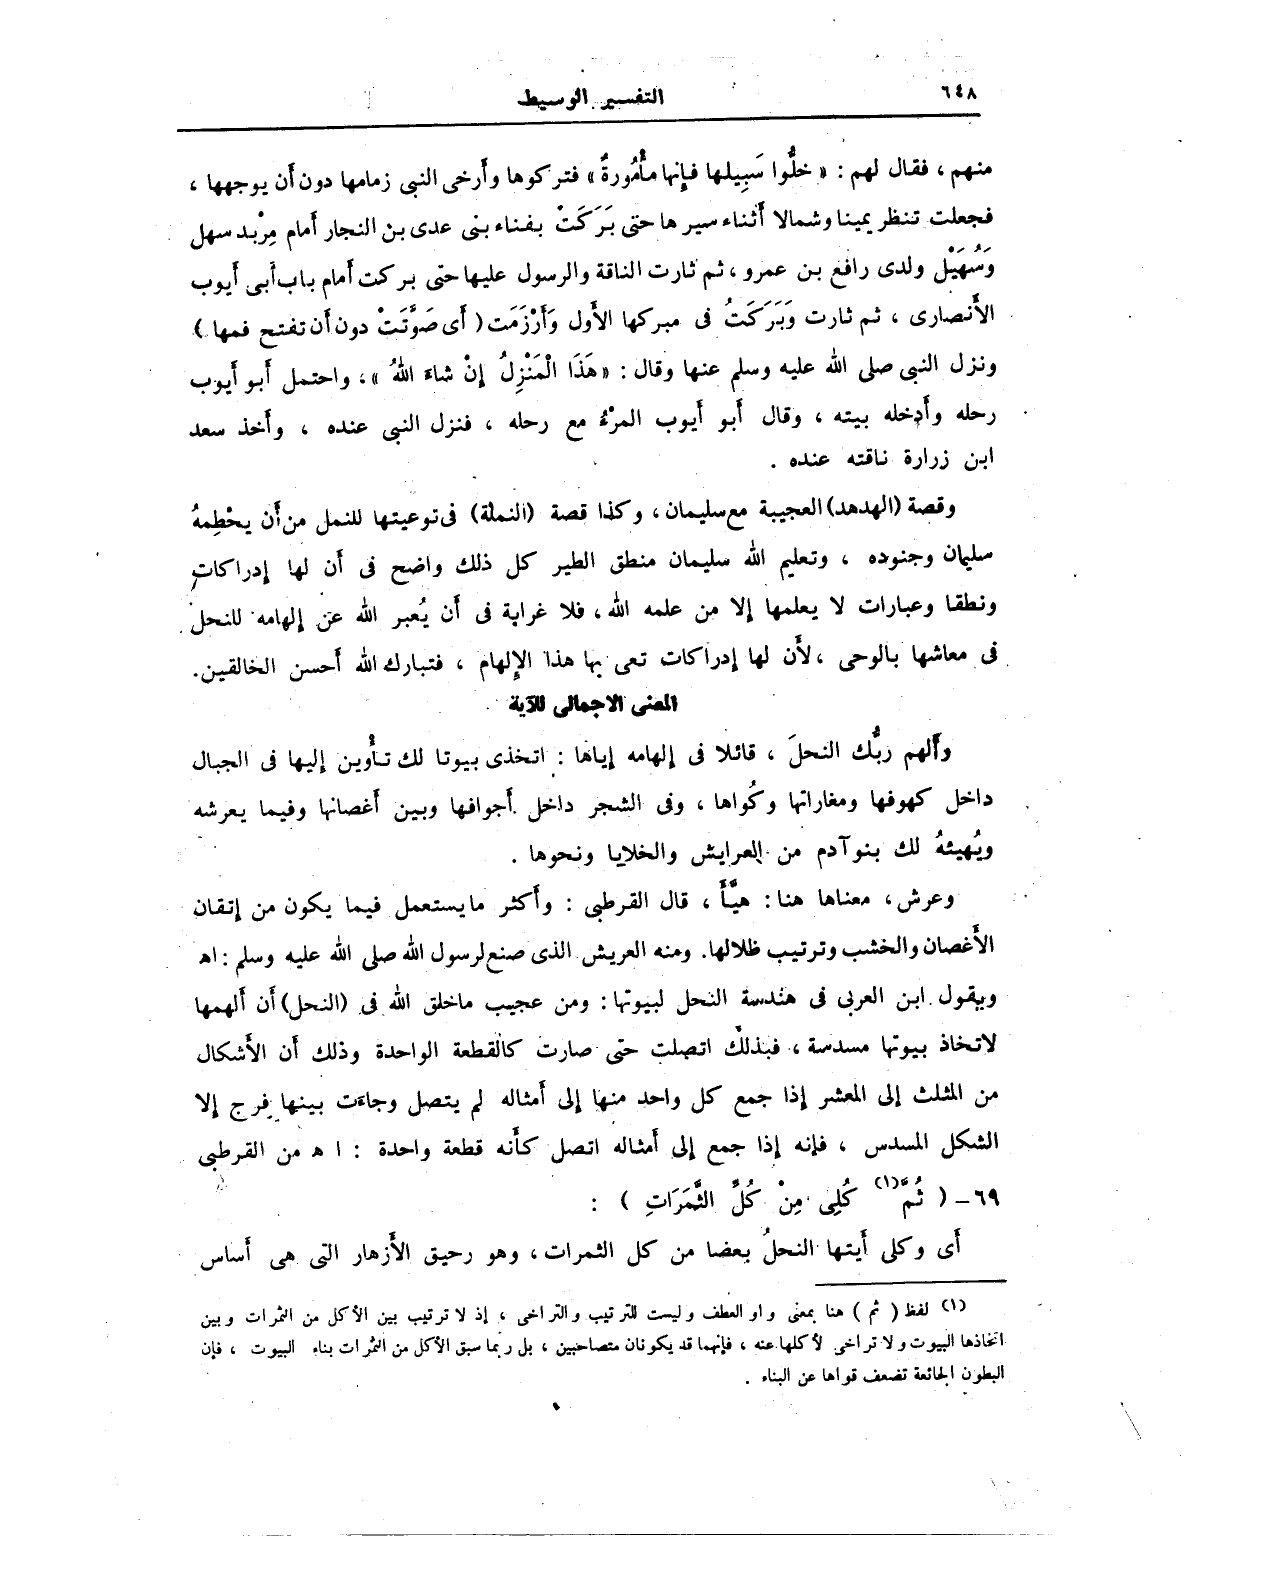 ٦٤٨
التفسير الوسيط
منهم ، فقال لهم : « خلُّوا سَبِيلها فإِنها مأْمُورةٌ » فتركوها وأرخى النبى زمامها دون أن يوجهها ،
فجعلت تنظر يمينا وشمالا أثناء سيرها حتى بَرَكَتْ بفناء بنى عدى بن النجار أمام مِرْبد سهل
وَسُهَيْل ولدى رافع بن عمرو ، ثم ثارت الناقة والرسول عليها حتى بركت أمام باب أبى أيوب
الأنصارى ، ثم ثارت وَبَرَكَتُ فى مبركها الأول وَأَرْزَمَت ( أى صَوَّتَتْ دون أن تفتح فمها )
ونزل النبى صلى الله عليه وسلم عنها وقال : « هَذَا الْمَنْزِلُ إِنْ شاءَ اللهُ » ، واحتمل أبو أيوب
رحله وأدخله بيته ، وقال أبو أيوب المرْءُ مع رحله ، فنزل النبى عنده ، وأخذ سعد
ابن زرارة ناقته عنده .
وقصة (الهدهد) العجيبة مع سليمان ، وكذا قصة (النملة) فى توعيتها للنمل من أن يحْطِمهُ
سليمان وجنوده ، وتعليم الله سليمان منطق الطير كل ذلك واضح فى أن لها إدراكات
ونطقا وعبارات لا يعلمها إلا من علمه الله ، فلا غرابة فى أن يُعبر الله عن إلهامه للنحل
فى معاشها بالوحى ، لأن لها إدراكات تعى بها هذا الإلهام ، فتبارك الله أحسن الخالقين.
المعنى الاجمالى للآية
وأَلهم ربُّك النحلَ ، قائلا فى إلهامه إياها : اتخذى بيوتا لك تأْوين إليها فى الجبال
داخل كهوفها ومغاراتها وكُواها ، وفى الشجر داخل أجوافها وبين أغصانها وفيما يعرشه
ويُهيئهُ لك بنو آدم من العرايش والخلايا ونحوها .
وعرش ، معناها هنا : هيَّأَ ، قال القرطبى : وأكثر ما يستعمل فيما يكون من إتقان
الأغصان والخشب وترتيب ظلالها. ومنه العريش الذى صنع لرسول الله صلى الله عليه وسلم : اه
ويقول ابن العربى فى هندسة النحل لبيوتها : ومن عجيب ماخلق الله فى (النحل) أن ألهمها
لاتخاذ بيوتها مسدسة ، فبذلك اتصلت حتى صارت كالقطعة الواحدة وذلك أن الأشكال
من المثلث إلى المعشر إذا جمع كل واحد منها إلى أمثاله لم يتصل وجاءت بينها فرج إلا
الشكل المسدس ، فإنه إذا جمع إلى أمثاله اتصل كأنه قطعة واحدة : ا ه من القرطبى
٦٩ – ( ثُمَّ(١) كُلِى مِنْ كُلِّ الثَّمَرَاتِ ) :
أى وكلى أيتها النحلُ بعضا من كل الثمرات ، وهو رحيق الأزهار التى هى أساس
(١) لفظ ( ثم ) هنا بمعنى واو العطف وليست للترتيب والتراخى ، إذ لا ترتيب بين الأكل من الثمرات وبين
اتخاذها البيوت ولا تراخى لأكلها عنه ، فإنهما قد يكونان متصاحبين ، بل ربما سبق الأكل من الثمرات بناء البيوت ، فإن
البطون الجائعة تضعف قواها عن البناء .